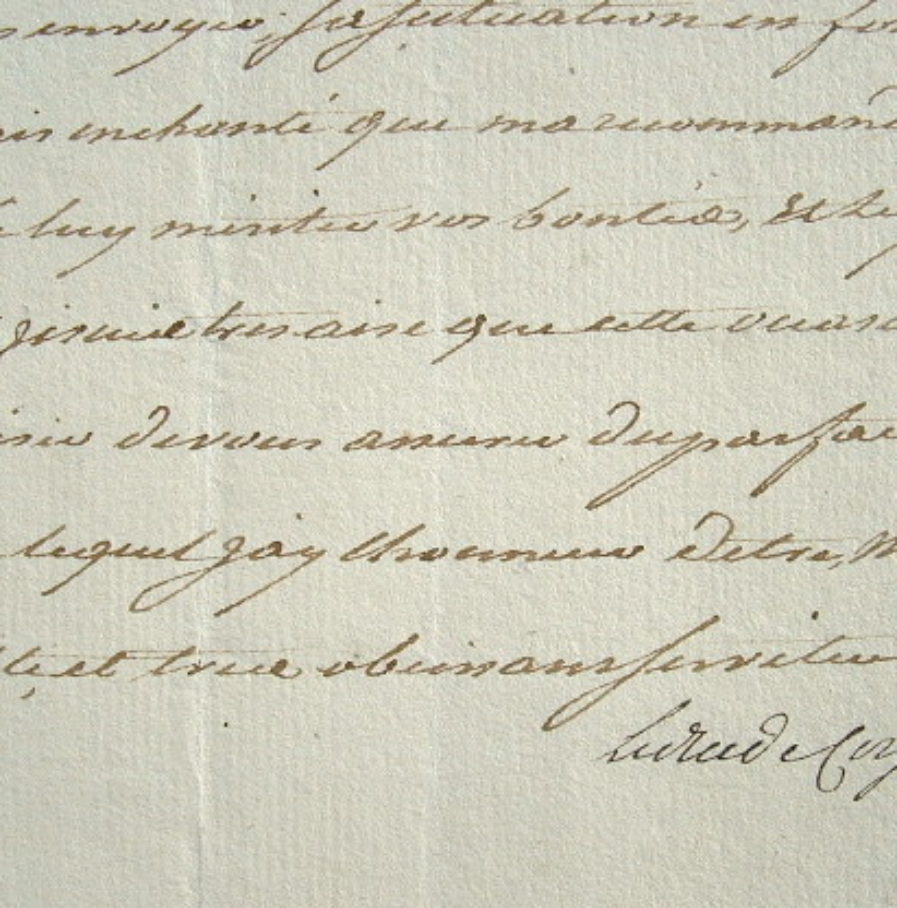 envoyer, sa situation en
enchanté que ma recommand
luy meriter vos bontés, et
je suis tres aise que cette occas
de vous assurer du parfai
lequel j'ay l'honneur d'etre,
et tres obeissans serviteu
Le duc de